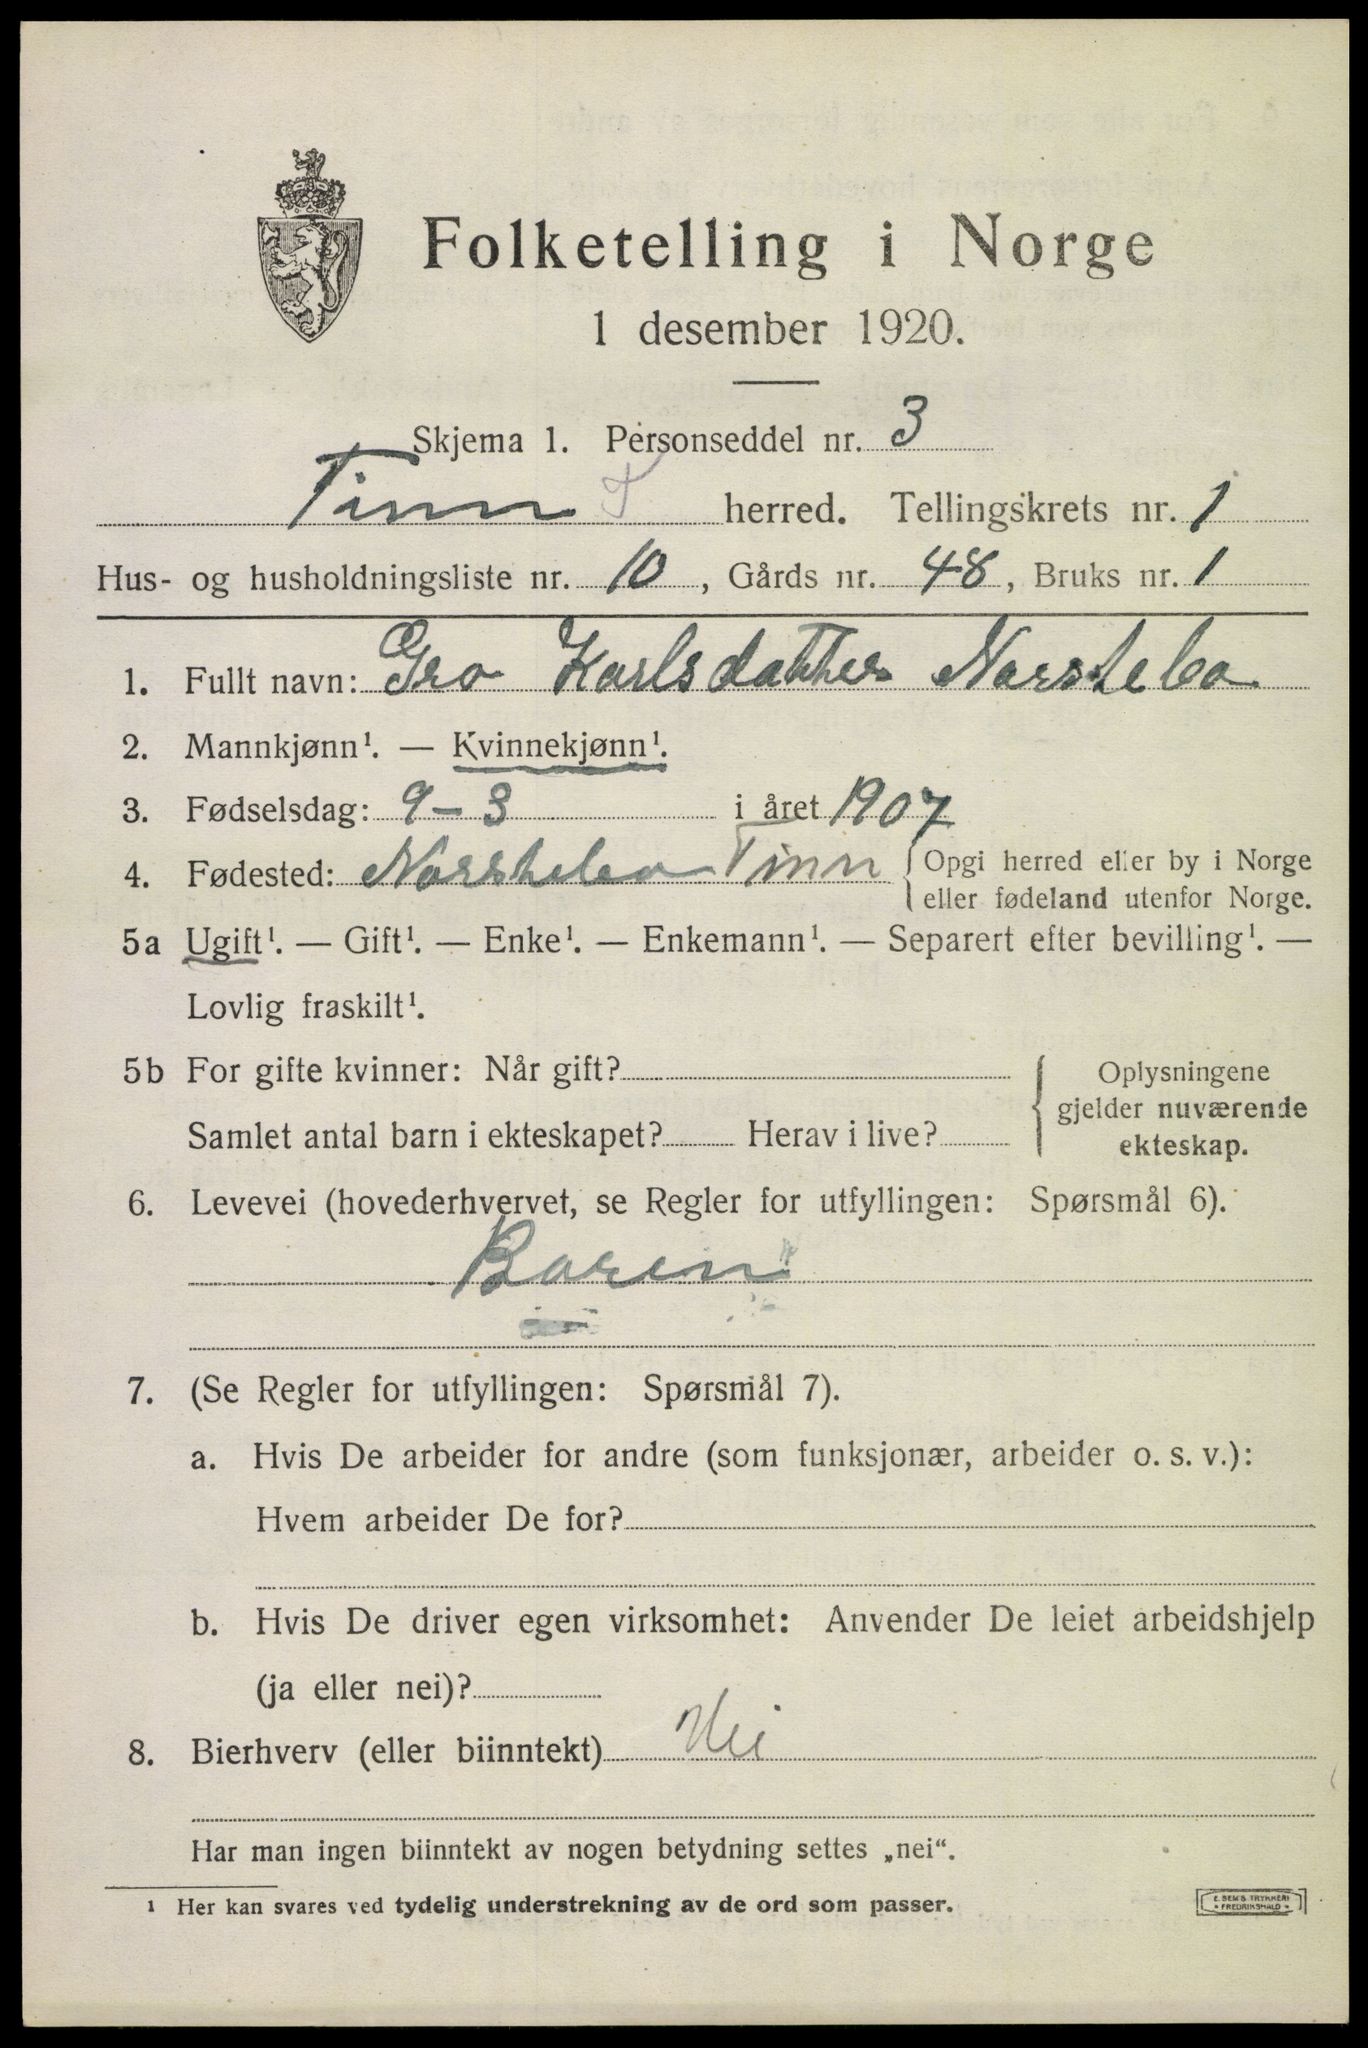 Folketelling i Norge
1 desember 1920.
Skjema 1. Personseddel nr. 3
Tinn T herred. Tellingskrets nr. 1
Hus- og husholdningsliste nr. 10, Gårds nr. 48, Bruks nr. 1
1. Fullt navn: Gro Karlsdatter Norstebo
2. Mannkjønn¹. — Kvinnekjønn¹.
3. Fødselsdag: 9-3 i året 1907
4. Fødested: Norstebo Tinn { Opgi herred eller by i Norge
eller fødeland utenfor Norge.
5a Ugift¹. — Gift¹. — Enke¹. — Enkemann¹. — Separert efter bevilling¹. —
Lovlig fraskilt¹.
5b For gifte kvinner: Når gift?
Samlet antal barn i ekteskapet? Herav i live?
{ Oplysningene
gjelder nuværende
ekteskap.
6. Levevei (hovederhvervet, se Regler for utfyllingen: Spørsmål 6).
7. (Se Regler for utfyllingen: Spørsmål 7).
a. Hvis De arbeider for andre (som funksjonær, arbeider o. s. v.):
Hvem arbeider De for?
b. Hvis De driver egen virksomhet: Anvender De leiet arbeidshjelp
(ja eller nei)?
8. Bierhverv (eller biinntekt) Nei
Har man ingen biinntekt av nogen betydning settes „nei“.
¹ Her kan svares ved tydelig understrekning av de ord som passer.
E. SEMS TRYKKERI
FREDRIKSHALD